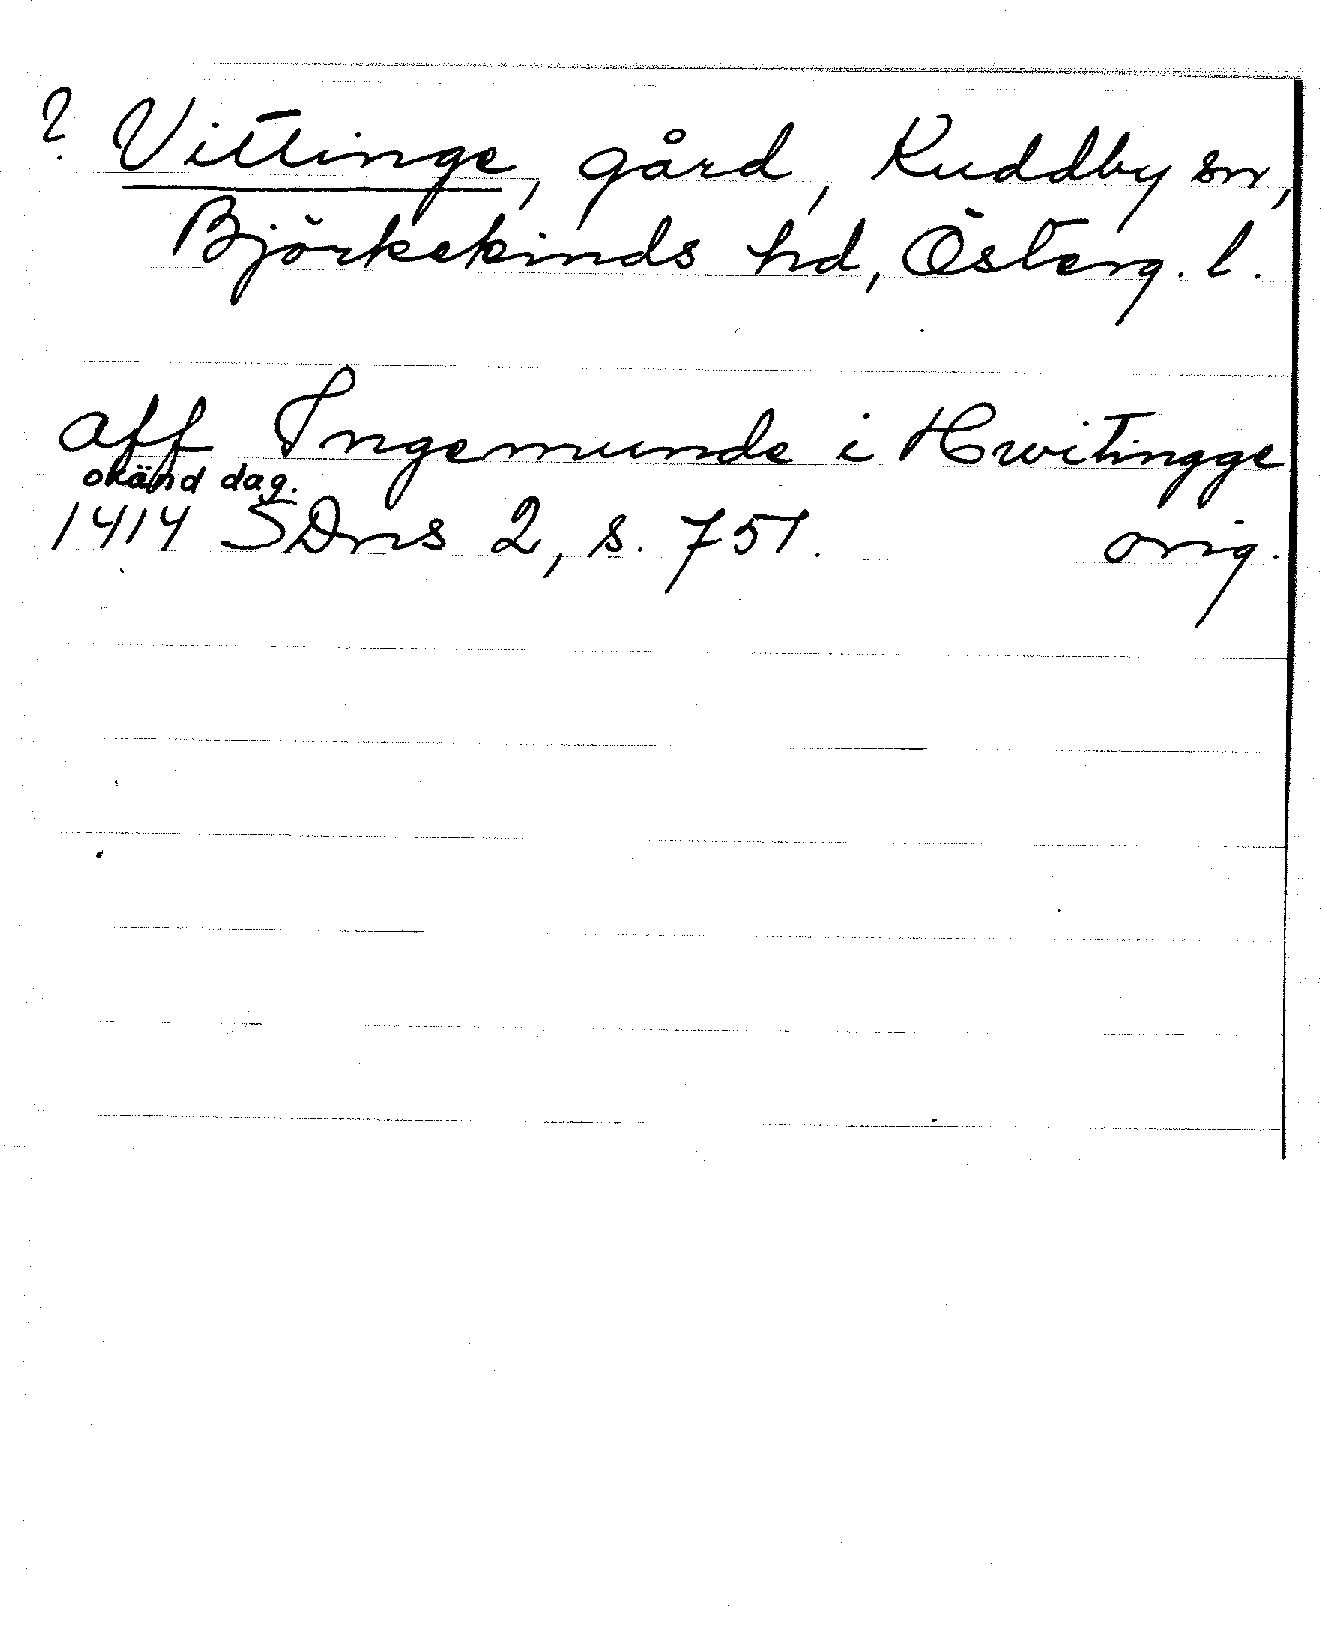 ? Vittinge, gård, Kuddby sn,
Björkekinds hd, Österg. l.
aff Ingemunde i Hwitingge
okänd dag.
1414 SDns 2, s. 751. orig.